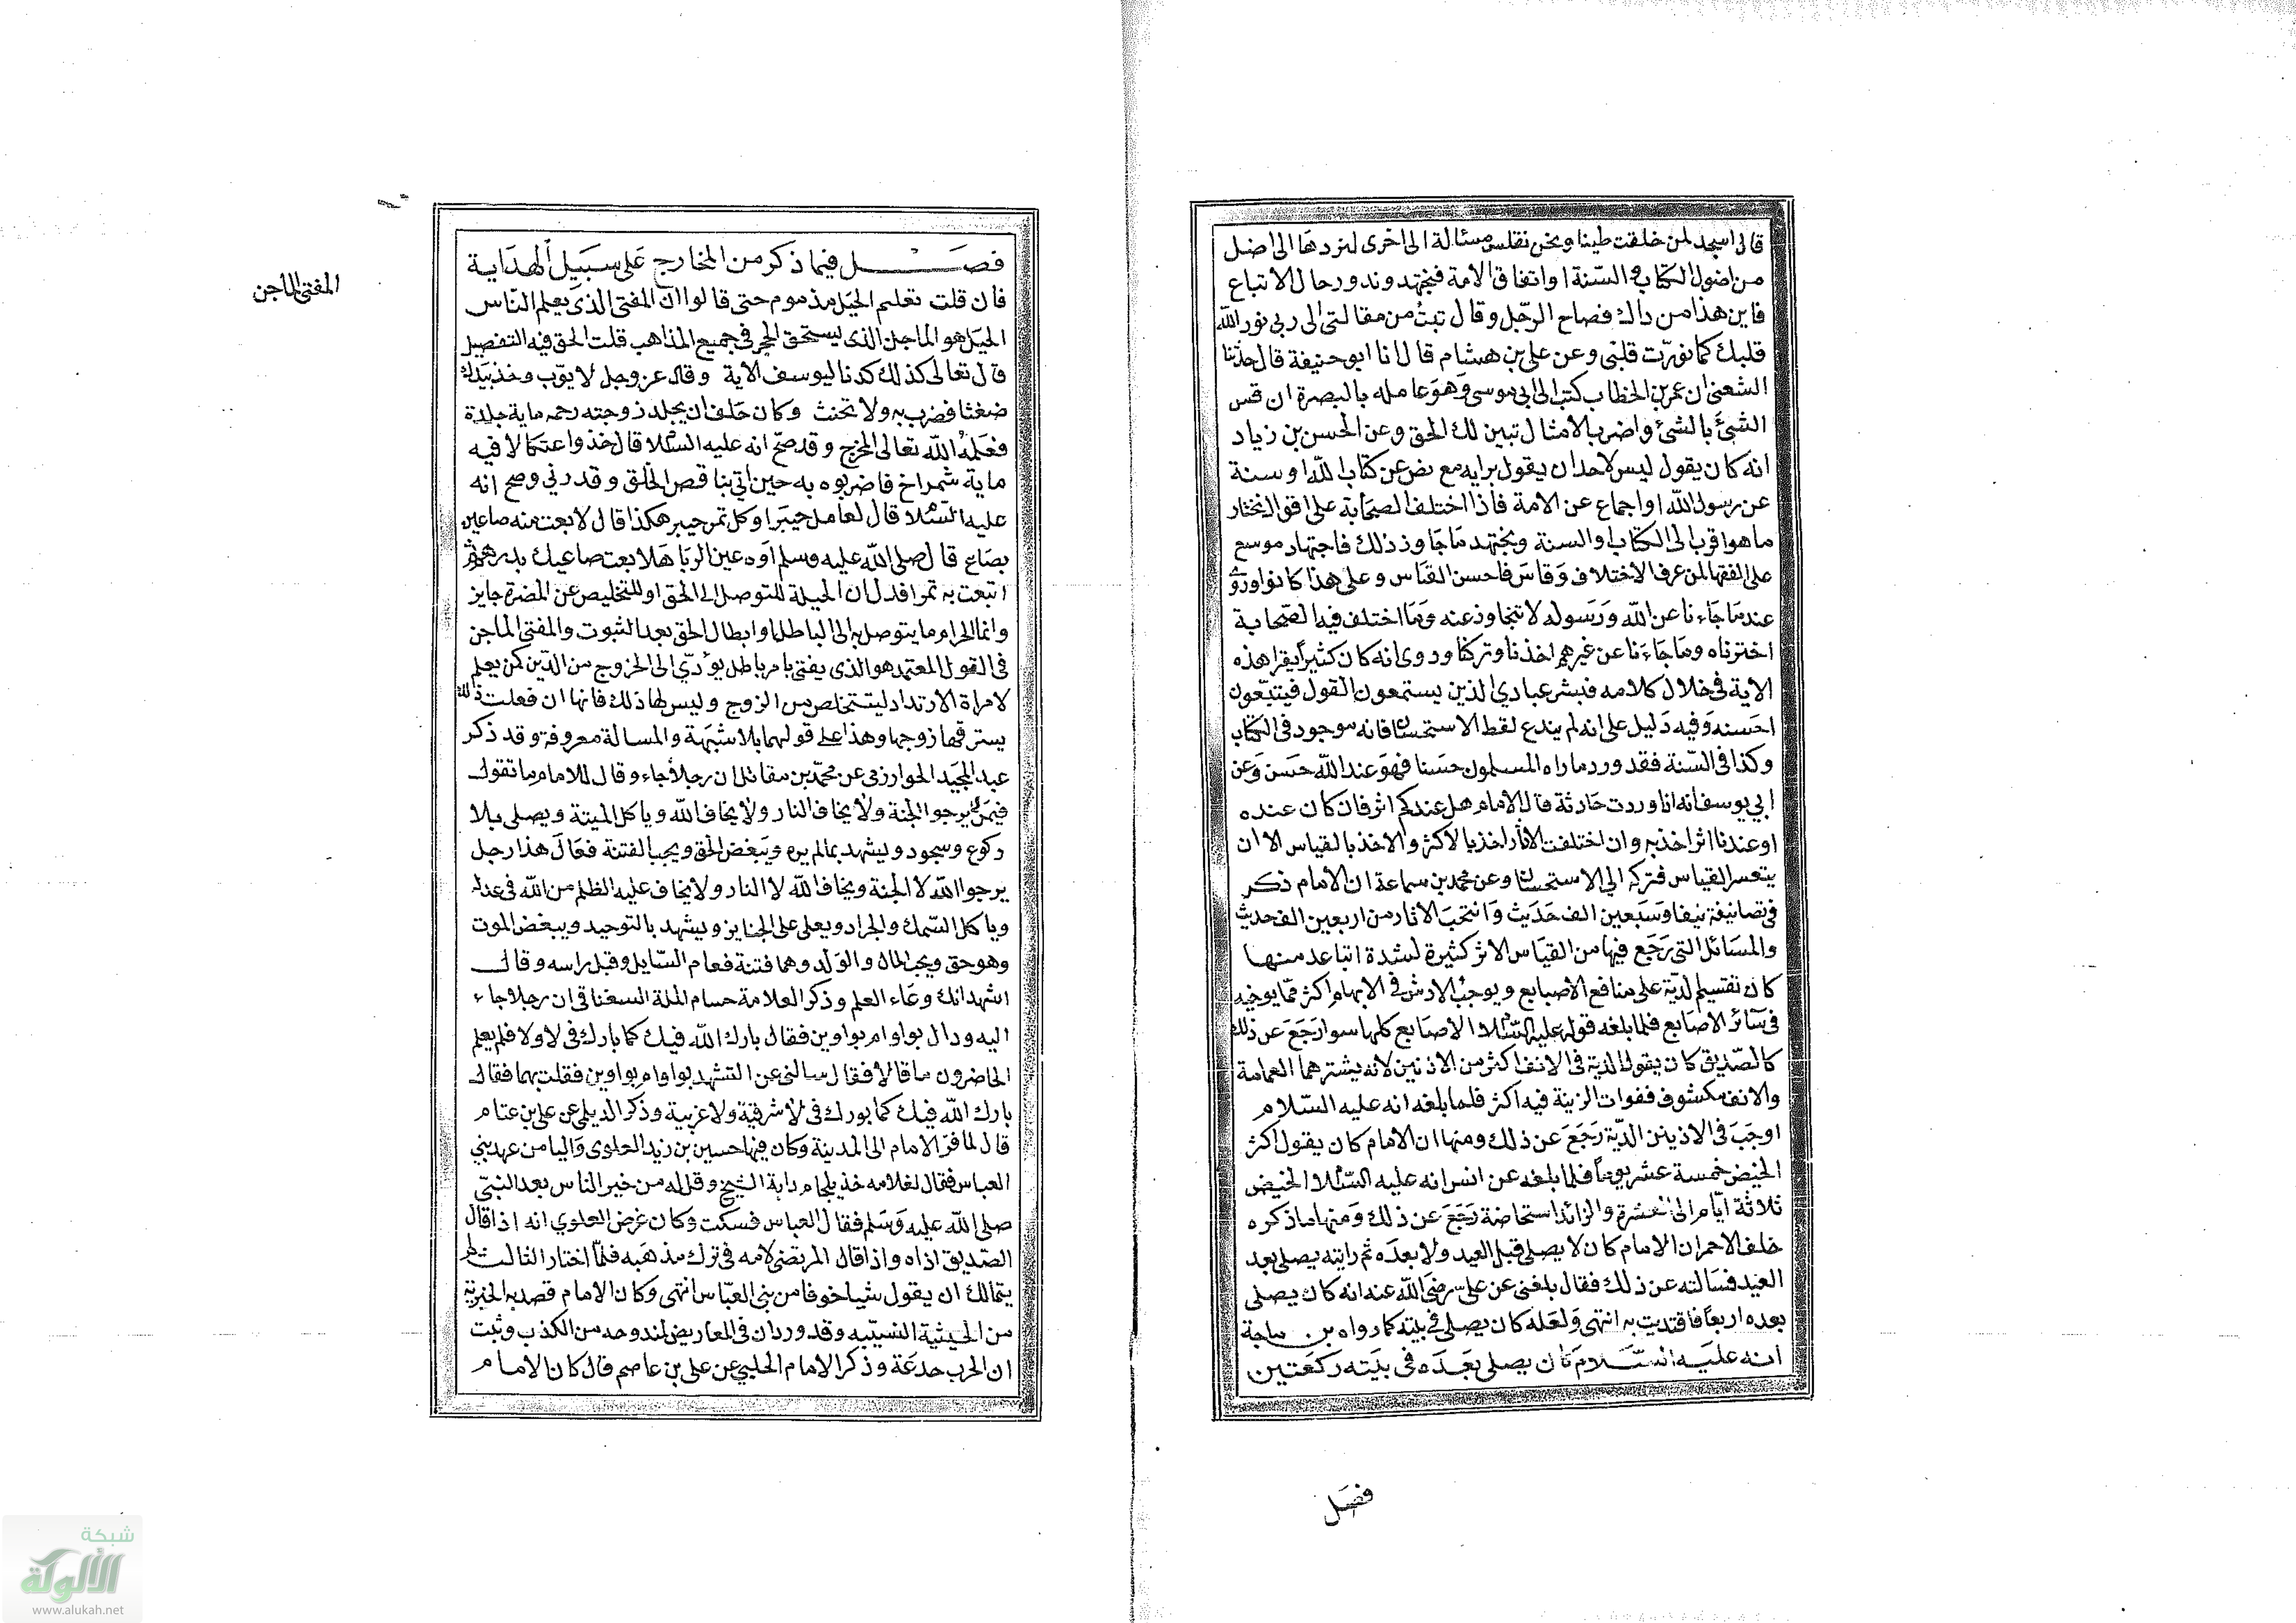 قال اسجد لمن خلقت طينا ونحن نقيس مسئالة الى اخرى لنردها الى اصل
من اصول الكتاب والسنة او اتفاق الامة فنجتهد وندور حال الاتباع
فاين هذا من ذاك فصاح الرجل وقال تبت من مقالتى الى ربى نور الله
قلبك كما نورت قلبى وعن على بن هشام قال انا ابو حنيفة قال حدثنا
الشعبى ان عمر بن الخطاب كتب الى ابى موسى وهو عامله بالبصرة ان قس
الشئ بالشئ واضرب الامثال تبين لك الحق وعن الحسن بن زياد
انه كان يقول ليس لاحد ان يقول برايه مع نص عن كتاب الله او سنة
عن رسول الله او اجماع عن الامة فاذا اختلف الصحابة على اقوال نختار
ما هو اقرب الى الكتاب او السنة ونجتهد ما جاوز ذلك فاجتهاد موسع
على الفقها لمن عرف الاختلاف وقاس فاحسن القياس وعلى هذا كانوا وروى
عنه ما جاءنا عن الله ورسوله لا نتجاوز عنه وما اختلف فيه الصحابة
اخترناه وما جاءنا عن غيرهم اخذنا وتركنا وروى انه كان كثيرا يقرا هذه
الاية فى خلال كلامه فبشر عبادي الذين يستمعون القول فيتبعون
احسنه وفيه دليل على انه لم يدع لفظ الاستحسان فانه موجود فى الكتاب
وكذا فى السنة فقد ورد ما راه المسلمون حسنا فهو عند الله حسن وعن
ابي يوسف انه اذا وردت حادثة قال الامام هل عندكم اثر فان كان عنده
او عندنا اثر اخذ به وان اختلفت الاثار اخذ بالاكثر والا خذ بالقياس الا ان
يتعسر القياس فتركه الى الاستحسان وعن محمد بن سماعة ان الامام ذكر
فى تصانيفه نيفا وسبعين الف حديث وانتخب الاثار من اربعين الف حديث
والمسائل التى رجع فيها من القياس الاثر كثيرة لشدة اتباعه منها
كان تقسيم الدية على منافع الاصابع ويوجب الارش فى الابهام اكثر مما يوجبه
فى سائر الاصابع فلما بلغه قوله عليه السلام الاصابع كلها سوا رجع عن ذلك
كالصديق كان يقول الدية فى الانف اكثر من الاذنين لانه يشترهما العمامة
والانف مكشوف ففوات الزينة فيه اكثر فلما بلغه انه عليه السلام
اوجب فى الاذينن الدية رجع عن ذلك ومنها ان الامام كان يقول اكثر
الحيض خمسة عشر يوما فلما بلغه عن انس انه عليه السلام الحيض
ثلاثة ايام الى العشرة والزائد استحاضة رجع عن ذلك ومنها ما ذكره
خلف الاحمر ان الامام كان لا يصلى قبل العيد ولا بعده ثم رايته يصلى بعد
العيد فسالته عن ذلك فقال بلغنى عن على رضى الله عنه انه كان يصلى
بعده اربعا فاقتديت به انتهى ولعله كان يصلى فى بيته كما رواه بن ماجة
انه عليه السلام كان يصلى بعده فى بيته ركعتين
فصل
فصل فيما ذكر من المخارج على سبيل الهداية
فان قلت تعليم الحيل مذموم حتى قالوا ان المفتى الذى يعلم الناس
الحيل هو الماجن الذى يستحق الحجر فى جميع المذاهب قلت الحق فيه التفصيل
قال تعالى كذلك كدنا ليوسف الاية وقال عز وجل لايوب وخذ بيدك
ضغثا فضرب به ولا تحنث وكان حلف ان يجلد زوجته رحمه ماية جلدة
فعلمه الله تعالى المخرج وقد صح انه عليه السلام قال خذوا عثكالا فيه
ماية شمراخ فاضربوه به حين اتي بناقص الخلق وقد زني وصح انه
عليه السلام قال لعامل خيبر اوكل تمر خيبر هكذا قال لا بعت منه صاعين
بصاع قال صلى الله عليه وسلم اوه عين الربا هلا بعت صاعيك بدرهم ثم
ابتعت به تمرا فدل ان الحيلة للتوصل الى الحق او للتخليص عن المضرة جايز
وانما الحرام ما يتوصل به الى الباطل او ابطال الحق بعد الثبوت والمفتى الماجن
فى القول المعتمد هو الذى يفتى بامر باطل يؤدي الى الخروج من الدين كمن يعلم
لامراة الارتداد ليتخلص من الزوج وليس لها ذلك فانها ان فعلت ذلك
يسترقها زوجها وهذا على قولهما بلا شبهة والمسالة معروفة وقد ذكر
عبد المجيد الخوارزمى عن محمد بن مقاتل ان رجلا جاء وقال للامام ما تقول
فيمن لا يرجوا الجنة ولا يخاف النار ولا يخاف الله وياكل الميتة ويصلى بلا
ركوع وسجود ويشهد بما لم يره ويبغض الحق ويحب الفتنة فقال هذا رجل
يرجوا الله لا الجنة ويخاف الله لا النار ولا يخاف عليه الظلم من الله فى عدله
وياكل السمك والجراد ويصلى على الجنايز ويشهد بالتوحيد ويبغض الموت
وهو حق ويحب المال والولد وهما فتنة فقام السايل وقبل راسه وقال
اشهد انك وعاء العلم وذكر العلامة حسام الملة السغناقى ان رجلا جاء
اليه وقال بواو ام بواوين فقال بارك الله فيك كما بارك فى لا ولا فلم يعلم
الحاضرون ما قالا فقال سالنى عن التشهد بواو ام بواوين فقلت بهما فقال
بارك الله فيك كما بورك فى لا شرقية ولا غربية وذكر الديلمى عن على بن عثام
قال لما فر الامام الى المدينة وكان فيها حسين بن زيد العلوى واليا من عهد بني
العباس فقال لغلامه خذ بلجام دابة الشيخ وقل له من خير الناس بعد النبي
صلى الله عليه وسلم فقال العباس فسكت وكان غرض العلوي انه اذا قال
الصديق اذاه واذا قال المرتضى لامه فى ترك مذهبه فلما اختار الثالث لم
يتمالك ان يقول شيا خوفا من بنى العباس انتهى وكان الامام قصد به الخيرية
من الحيثية النسبيه وقد ورد ان فى المعاريض لمندوحه من الكذب وثبت
ان الحرب خدعة وذكر الامام الحلبي عن على بن عاصم قال كان الامام
المفتى الماجن
شبكة
الألوكة
www.alukah.net